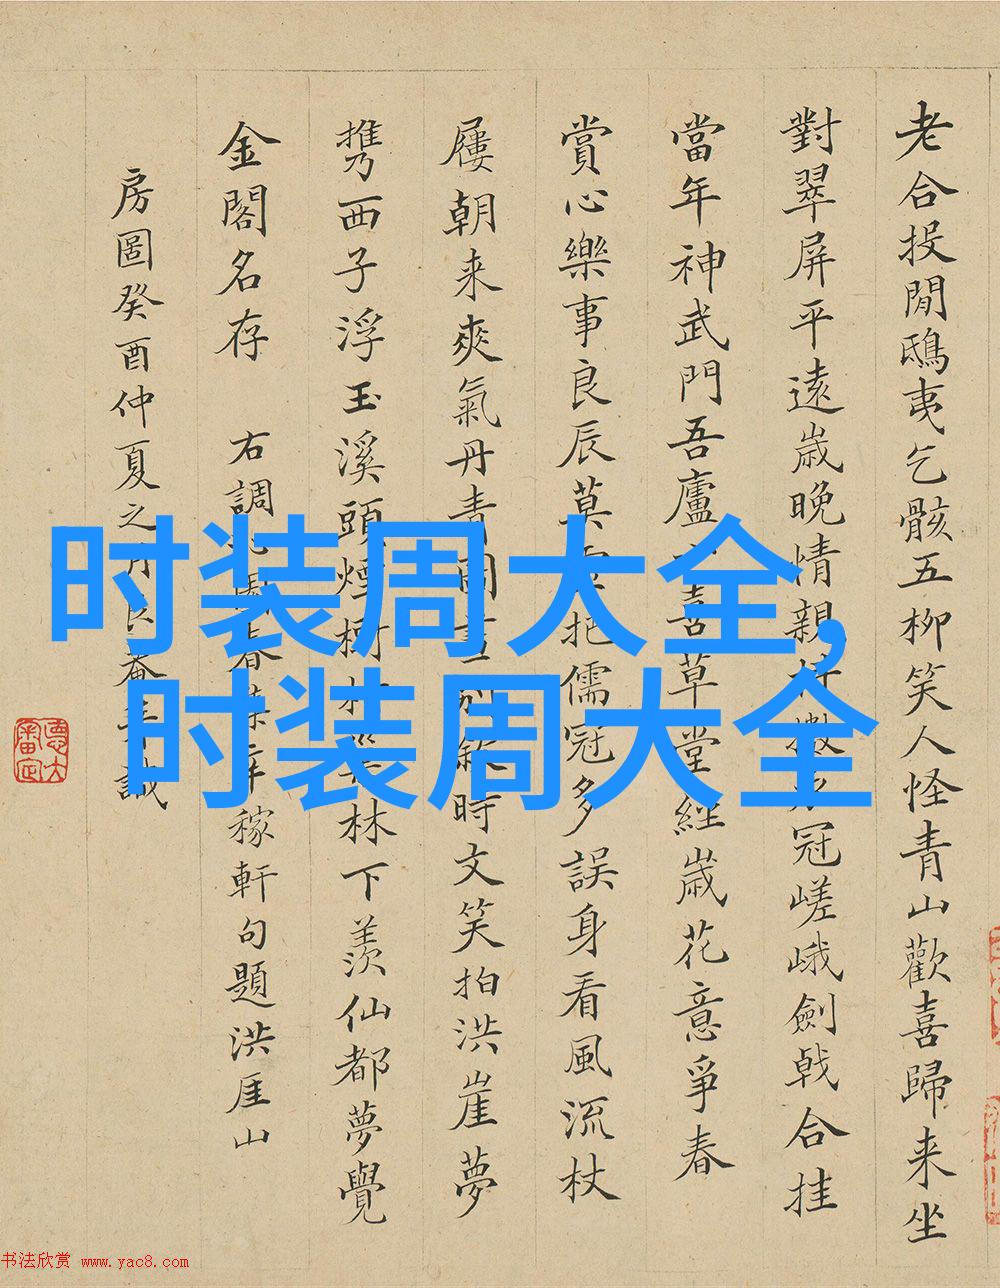 老合投閒鴟夷乞骸五柳笑人怪青山歡喜歸来坐
對翠屏平遠歲晚情親冠嵯峨劍戟合挂
當年神武門吾廬喜草堂經歲花意爭春
賞心樂事良辰莫把儒冠多誤身看風流杖
屨朝来爽氣丹青圖畫時文笑拍洪崖夢
携西子浮玉溪頭煙樹林下羨仙都夢覺
金閣名存 右調春稼軒句題洪厓山
房圖癸酉仲夏之月識
时装周大全,
时装周大全
书法欣赏 www.yac8.com